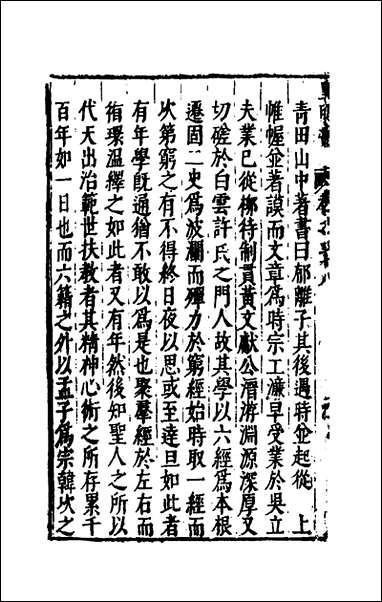 青田山中著書曰郁離子其後遇時並起從　上
帷幄並著謨而文章為時宗工濂早受業於吳立
夫業已從柳待制貫黃文獻公溍游淵源深厚又
切磋於白雲許氏之門人故其學以六經為本根
遷固二史為波瀾而殫力於窮經始時取一經而
次第窮之有不得終日夜以思或至達旦如此者
有年學既通猶不敢以為是也聚羣經於左右而
循環溫繹之如此者又有年然後知聖人之所以
代天出治範世扶教者其精神心術之所存累千
百年如一日也而六籍之外以孟子為宗韓次之